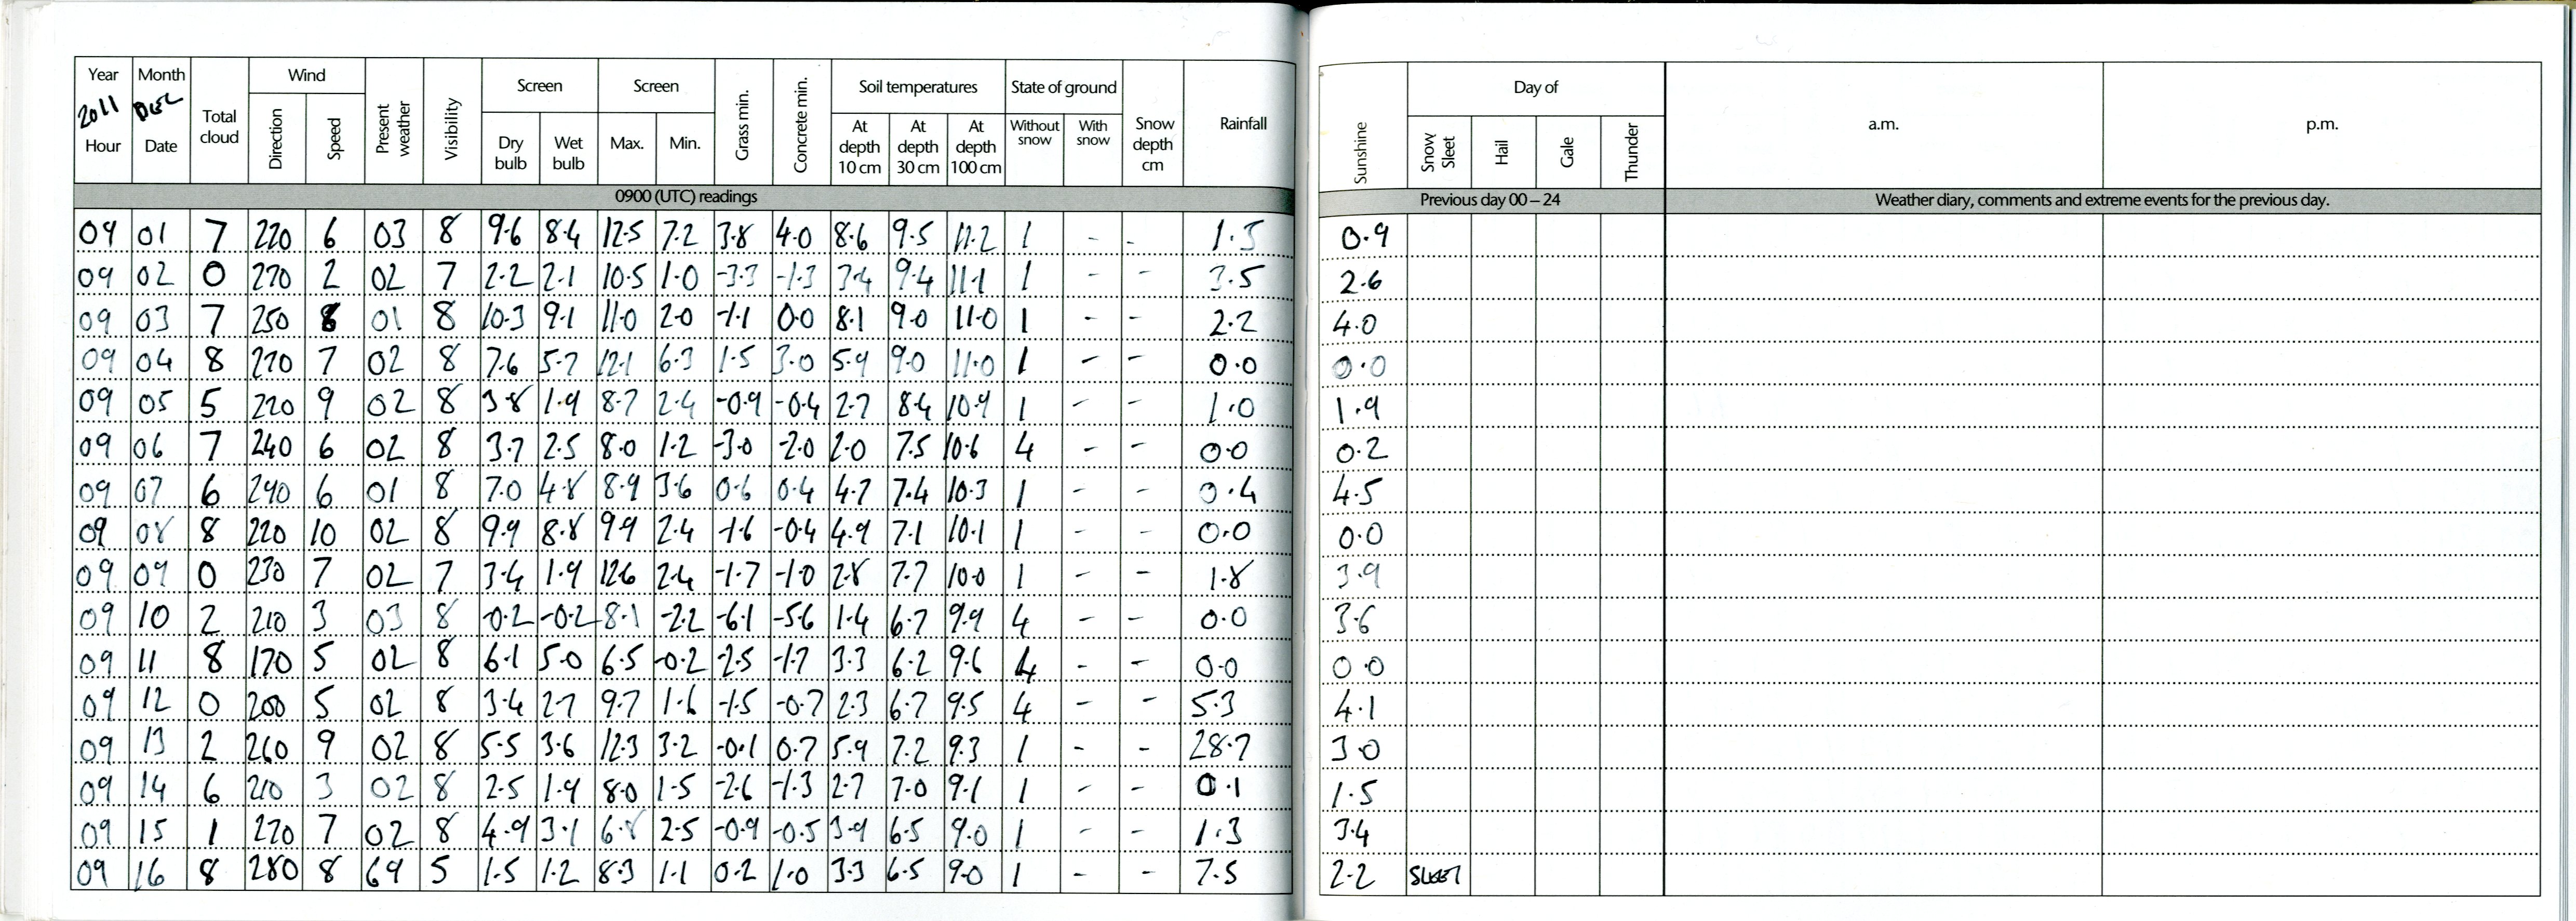 Year Month Total cloud Wind Present weather Visibility Screen Screen Grass min. Concrete min. Soil temperatures State of ground Snow depth cm Rainfall Sunshine Day of a.m. p.m.
2011 DEC
Hour Date Direction Speed Dry bulb Wet bulb Max. Min. At depth 10 cm At depth 30 cm At depth 100 cm Without snow With snow Snow Sleet Hail Gale Thunder
0900 (UTC) readings Previous day 00 – 24 Weather diary, comments and extreme events for the previous day.
09 01 7 220 6 03 8 9.6 8.4 12.5 7.2 3.8 4.0 8.6 9.5 11.2 1 - - 1.5 0.9
09 02 0 270 2 02 7 2.2 2.1 10.5 1.0 -3.3 -1.3 3.4 9.4 11.1 1 - - 3.5 2.6
09 03 7 250 8 01 8 10.3 9.1 11.0 2.0 -1.1 0.0 8.1 9.0 11.0 1 - - 2.2 4.0
09 04 8 270 7 02 8 7.6 5.7 12.1 6.3 1.5 3.0 5.9 9.0 11.0 1 - - 0.0 0.0
09 05 5 220 9 02 8 3.8 1.9 8.7 2.4 -0.9 -0.4 2.7 8.4 10.9 1 - - 1.0 1.9
09 06 7 240 6 02 8 3.7 2.5 8.0 1.2 -3.0 -2.0 2.0 7.5 10.6 4 - - 0.0 0.2
09 07 6 290 6 01 8 7.0 4.8 8.9 3.6 0.6 0.4 4.7 7.4 10.3 1 - - 0.4 4.5
09 08 8 220 10 02 8 9.9 8.8 9.9 2.4 -1.6 -0.4 4.9 7.1 10.1 1 - - 0.0 0.0
09 09 0 230 7 02 7 3.4 1.9 12.6 2.4 -1.7 -1.0 2.8 7.7 10.0 1 - - 1.8 3.9
09 10 2 210 3 03 8 -0.2 -0.2 8.1 -2.2 -6.1 -5.6 1.4 6.7 9.9 4 - - 0.0 3.6
09 11 8 170 5 02 8 6.1 5.0 6.5 -0.2 -2.5 -1.7 3.3 6.2 9.6 4 - - 0.0 0.0
09 12 0 200 5 02 8 3.4 2.7 9.7 1.6 -1.5 -0.7 2.3 6.7 9.5 4 - - 5.3 4.1
09 13 2 260 9 02 8 5.5 3.6 12.3 3.2 -0.1 0.7 5.9 7.2 9.3 1 - - 28.7 3.0
09 14 6 210 3 02 8 2.5 1.9 8.0 1.5 -2.6 -1.3 2.7 7.0 9.1 1 - - 0.1 1.5
09 15 1 270 7 02 8 4.9 3.1 6.8 2.5 -0.9 -0.5 3.9 6.5 9.0 1 - - 1.3 3.4
09 16 8 280 8 69 5 1.5 1.2 8.3 1.1 0.2 1.0 3.3 6.5 9.0 1 - - 7.5 2.2 SLEET